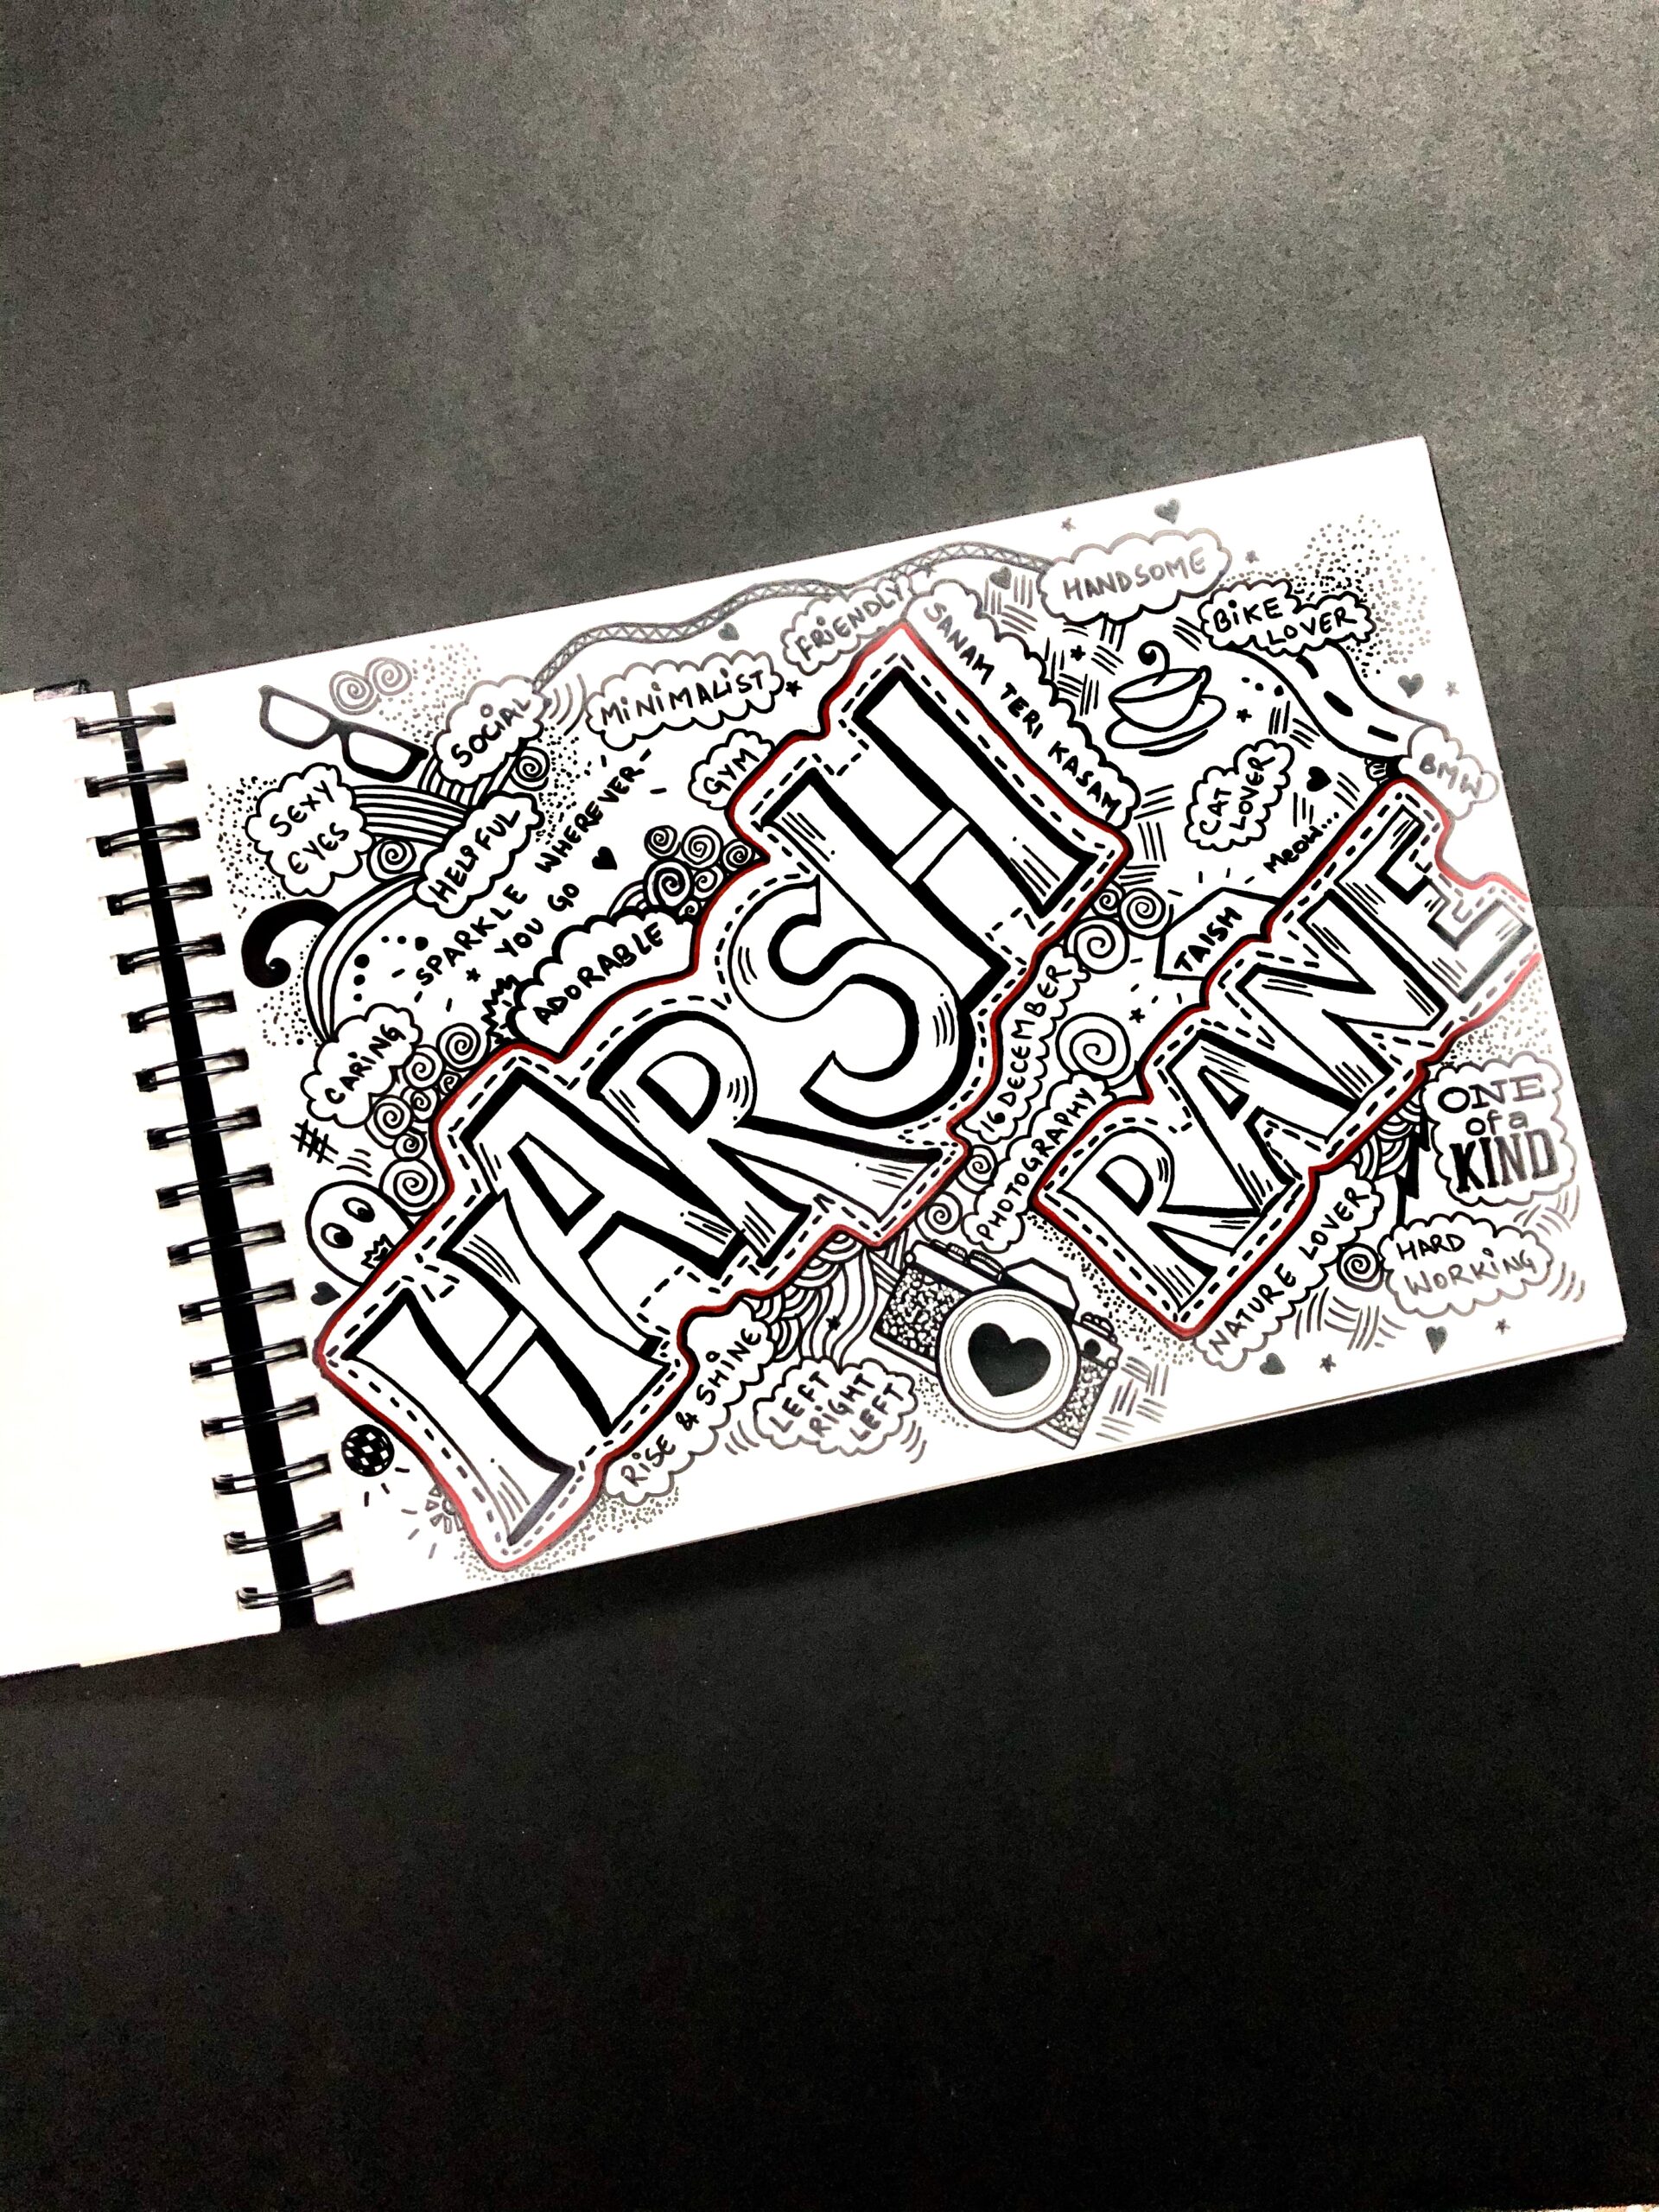 HANDSOME
BIKE
LOVER
FRIENDLY
SANAM TERI KASAM
MINIMALIST
SOCIAL
GYM
BMW
CAT
LOVER
Meow...
SEXY
EYES
HELPFUL
SPARKLE WHEREVER
YOU GO
ADORABLE
TAISH
HARSH
RANE
CARING
#
16 DECEMBER
PHOTOGRAPHY
ONE
of a
KIND
NATURE LOVER
HARD
WORKING
RISE & SHINE
LEFT
RIGHT
LEFT